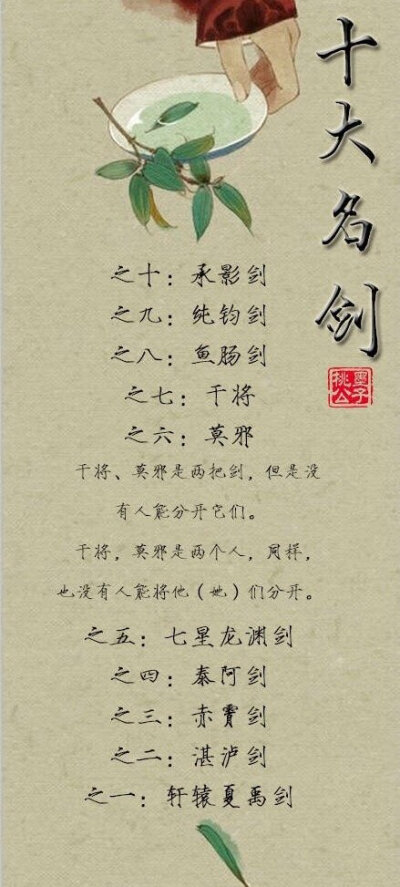 十大名剑
桃墨
公子
之十：承影剑
之九：纯钧剑
之八：鱼肠剑
之七：干将
之六：莫邪
干将、莫邪是两把剑，但是没
有人能分开它们。
干将，莫邪是两个人，同样，
也没有人能将他（她）们分开。
之五：七星龙渊剑
之四：泰阿剑
之三：赤霄剑
之二：湛泸剑
之一：轩辕夏禹剑